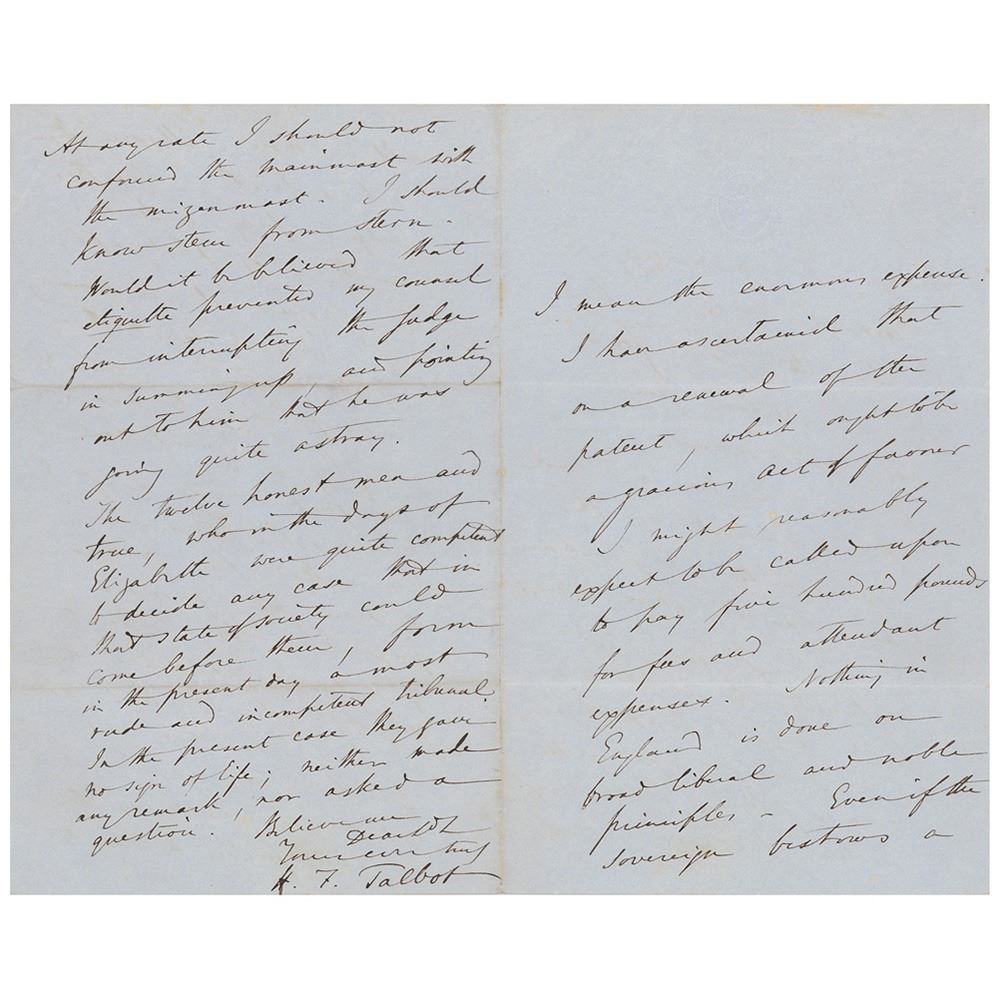 At any rate I should not
confound the mainmast with
the mizenmast. I should
know stem from stern.
Would it be believed that
etiquette prevented my counsel
from interrupting the Judge
in summing up, and pointing
out to him that he was
going quite astray.
The twelve honest men and
true, who in the days of
Elizabeth were quite competent
to decide any case that in
that state of society could
come before them, form
in the present day a most
rude and incompetent tribunal
In the present case they gave
no sign of life; neither made
any remark, nor asked a
question.
Believe me
Dear
Yours very truly
H. F. Talbot
I mean the enormous expense.
I have ascertained that
on a renewal of the
patent, which ought to be
a gracious act of favour
I might reasonably
expect to be called upon
to pay five hundred pounds
for fees and attendant
expenses. Nothing in
England is done on
broad liberal and noble
principles - Even if the
Sovereign bestows a